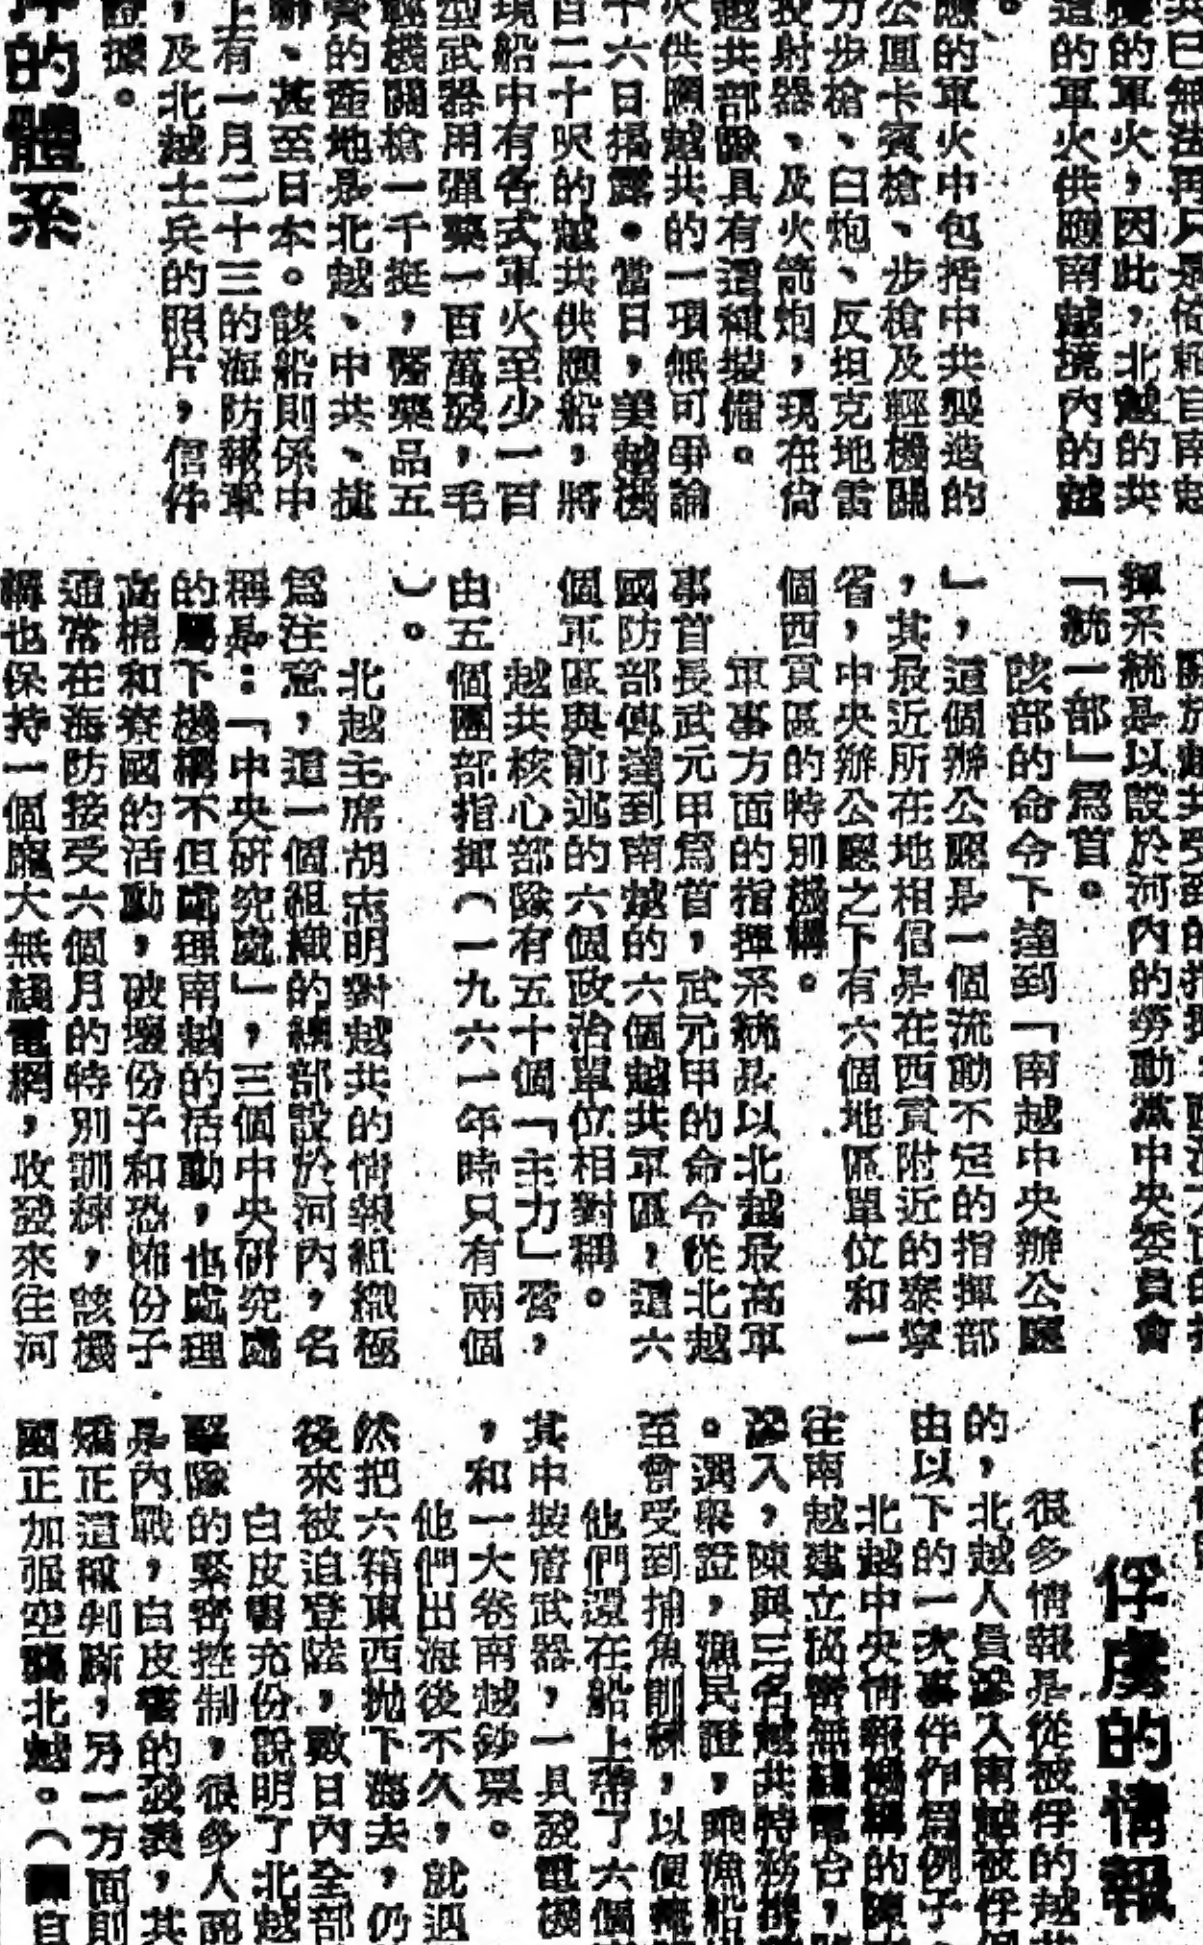 共已無法再只是倚賴自南越
的軍火，因此，北越的共
這的軍火供應南越境內的越
。
應的軍火中包括中共製造的
公厘卡賓槍、步槍及輕機關
力步槍、臼炮、反坦克地雷
投射器、及火箭炮，現在尚
越共部隊具有這種裝備。
火供應越共的一項無可爭論
十六日揭露。當日，美越機
百二十呎的越共供應船，將
現船中有各式軍火至少一百
型武器用彈藥一百萬發，毛
輕機關槍一千挺，醫藥品五
的產地是北越、中共、捷
、甚至日本。該船則係中
上有一月二十三的海防報章
，及北越士兵的照片，信件
證據。
的體系
揮系統是以設於河內的勞動黨中央委員會
「統一部」爲首。
該部的命令下達到「南越中央辦公廳
」，這個辦公廳是一個流動不定的指揮部
，其最近所在地相信是在西貢附近的泰寧
省，中央辦公廳之下有六個地區單位和一
個西貢區的特別機構。
軍事方面的指揮系統是以北越最高軍
事首長武元甲爲首，武元甲的命令從北越
國防部傳達到南越的六個越共軍區，這六
個軍區與前述的六個政治單位相對稱。
越共核心部隊有五十個「主力」營，
由五個團部指揮（一九六一年時只有兩個
）。
北越主席胡志明對越共的情報組織極
爲注意，這一個組織的總部設於河內，名
稱是：「中央研究處」，三個中央研究處
的屬下機構不但處理南越的活動，也處理
高棉和寮國的活動，破壞份子和恐怖份子
通常在海防接受六個月的特別訓練，該機
構也保持一個龐大無綫電網，收發來往河
俘虜的情報
很多情報是從被俘的越共
的，北越人員滲入南越被俘
由以下的一次事件作爲例子。
北越中央情報機構的陳
往南越建立秘密無綫電台，
滲入，陳與三名越共特務
。選舉證，漁民證，乘漁船
至會受到捕魚訓練，以便
他們還在船上帶了六個
其中裝着武器，一具發電機
，和一大卷南越鈔票。
他們出海後不久，就遇
然把六箱東西拋下海去，仍
後來被迫登陸，數日內全部
白皮書充份說明了北越
擊隊的緊密控制，很多人認
是內戰，白皮書的發表，其
矯正這種判斷，另一方面則
國正加强空襲北越。（